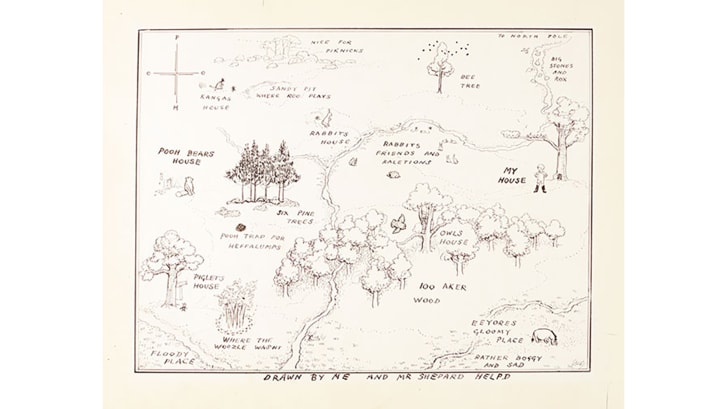 P
O O
H
NICE FOR
PIKNICKS
TO NORTH POLE
BIG
STONES
AND
ROX
BEE
TREE
KANGAS
HOUSE
SANDY PIT
WHERE ROO PLAYS
RABBITS
HOUSE
RABBITS
FRIENDS AND
RALETIONS
POOH BEARS
HOUSE
MY
HOUSE
SIX PINE
TREES
POOH TRAP FOR
HEFFALUMPS
OWLS
HOUSE
PIGLETS
HOUSE
100 AKER
WOOD
WHERE THE
WOOZLE WASNT
FLOODY
PLACE
EEYORES
GLOOMY
PLACE
RATHER BOGGY
AND SAD
DRAWN BY ME AND MR SHEPARD HELPD